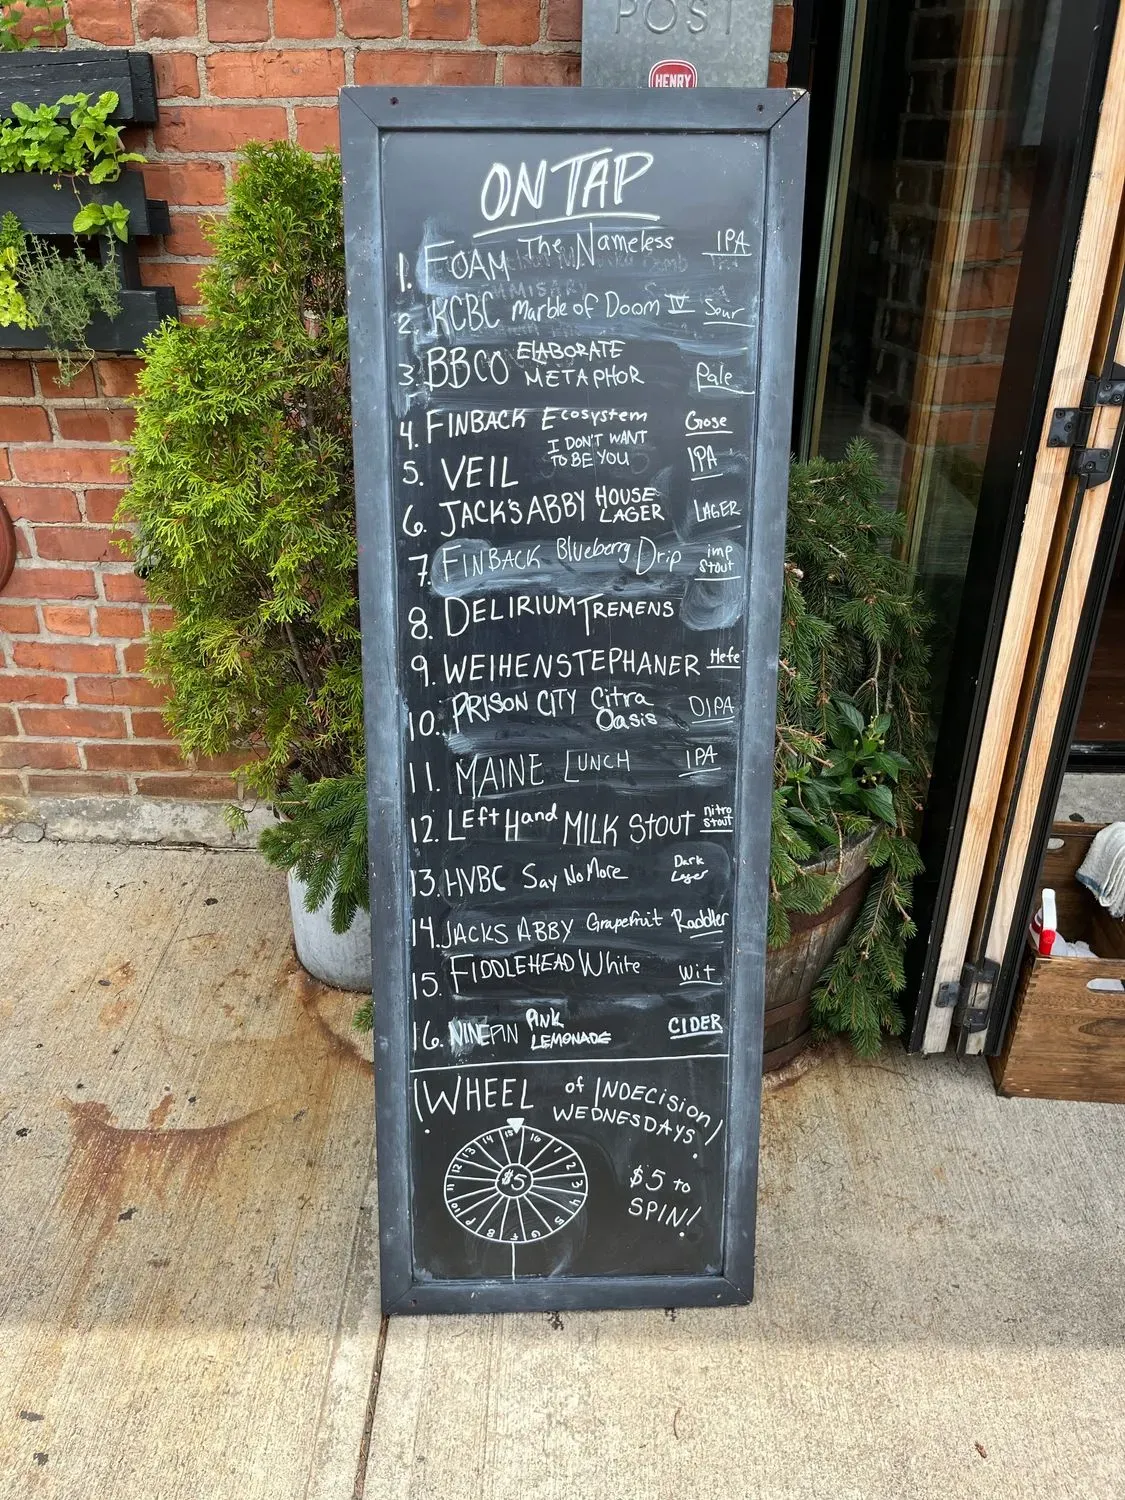 POST
HENRY
ON TAP
1. FOAM The Nameless IPA
2. KCBC Marble of Doom IV Sour
3. BBCO ELABORATE METAPHOR Pale
4. FINBACK Ecosystem Gose
5. VEIL I DON'T WANT TO BE YOU IPA
6. JACK'S ABBY HOUSE LAGER LAGER
7. FINBACK Blueberry Drip imp Stout
8. DELIRIUM TREMENS
9. WEIHENSTEPHANER Hefe
10. PRISON CITY Citra Oasis DIPA
11. MAINE LUNCH IPA
12. Left Hand MILK STOUT nitro stout
13. HVBC Say No More Dark Lager
14. JACKS ABBY Grapefruit Raddler
15. FIDDLEHEAD White Wit
16. NINEPIN PINK LEMONADE CIDER
¡WHEEL of INDECISION
WEDNESDAYS!
$5 to
SPIN!
15 16 1 2 3 4 5 6 7 8 9 10 11 12 13 14
$5